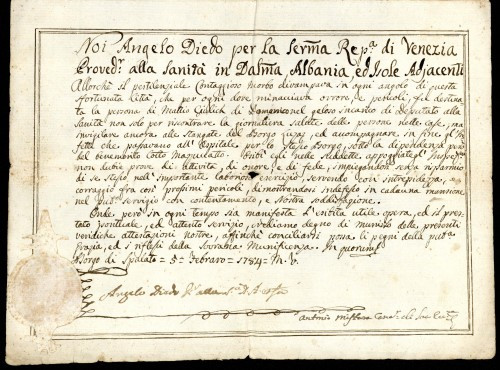 Noi Angelo Diedo per la Serma Repa di Venezia
Provedr alla Sanità in Dalma, Albania, ed Isole Adjacenti
Allorchè il pestilenziale Contagioso morbo divampava in ogni angolo di questa
sfortunata Città, che per ogni dove minaciava orrore, e pericoli, fu destina
ta la persona di Mattio Giulich di Domenico nel geloso incarico di Deputato alla
Sanità non solo per riscontrare la giornaliera salute delle persone nelle case, ma
invigilare ancora alle Stangate del Borgo, ed accompagnare in fine gl'In
fetti che passavano all'Ospitale per lo stesso Borgo, sotto la dipendenza per
del benemerito Conte. Diede egli nelle suddette appoggiategli Inspezni
non dubie prove di attività, di onore, e di fede, impiegandosi senza risparmio
di se stesso nell'importante laborioso esercizio, servendo con intrepidezza, e
corraggio fra così prossimi pericoli, dimostrandosi indefesso in cadauna mansione
nel Pubo Servigio con contentamento, e Nostra soddisfazione.
Onde però in ogni tempo sia manifesta l'entità utile opera, ed il pres
tato pontuale, ed attento Servizio, crediamo degno di munirlo delle presenti
veridiche attestazioni nostre, affinchè conciliarsi possa li pegni della puba
Grazia, ed i riflessi della Sovrana Munificenza. In quorum
Borgo di Spalato = 5 = Febraro = 1784 = M. V.
Angelo Diedo
Antonio Canc.